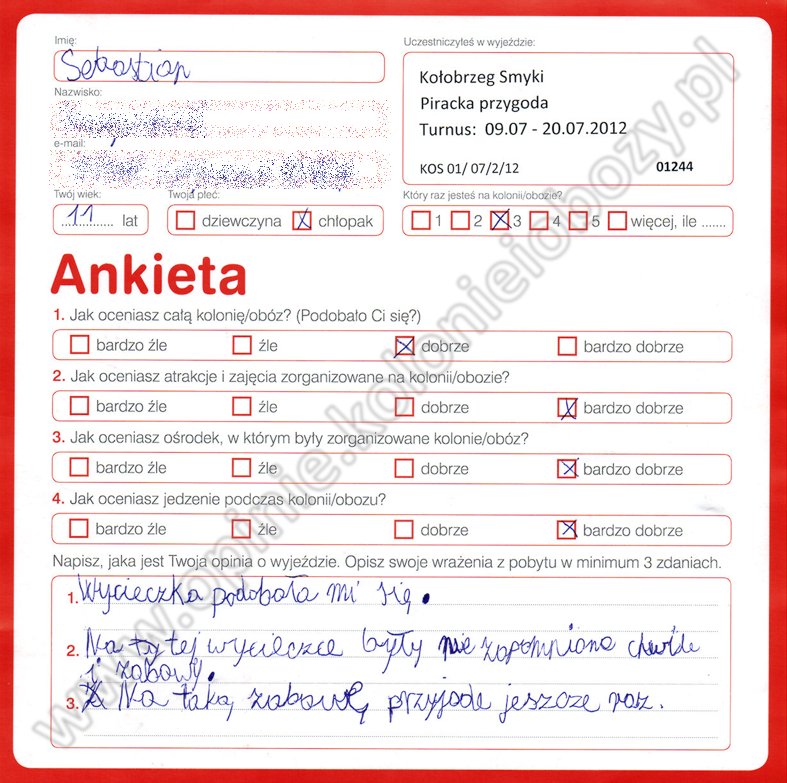 Imię:
Uczestniczyłeś w wyjeździe:
Sebastian
Kołobrzeg Smyki
Piracka przygoda
Turnus: 09.07 - 20.07.2012
KOS 01/ 07/2/12 01244
Nazwisko:
e-mail:
Twój wiek: Twoja płeć: Który raz jesteś na kolonii/obozie?
11 lat dziewczyna chłopak 1 2 3 4 5 więcej, ile .......
Ankieta
1. Jak oceniasz całą kolonię/obóz? (Podobało Ci się?)
bardzo źle źle dobrze bardzo dobrze
2. Jak oceniasz atrakcje i zajęcia zorganizowane na kolonii/obozie?
bardzo źle źle dobrze bardzo dobrze
3. Jak oceniasz ośrodek, w którym były zorganizowane kolonie/obóz?
bardzo źle źle dobrze bardzo dobrze
4. Jak oceniasz jedzenie podczas kolonii/obozu?
bardzo źle źle dobrze bardzo dobrze
Napisz, jaka jest Twoja opinia o wyjeździe. Opisz swoje wrażenia z pobytu w minimum 3 zdaniach.
1. Wycieczka podobała mi się.
2. Na tej wycieczce były nie zapomniane chwile
i zabawy.
3. Na taką zabawę przyjade jeszcze raz.
www.opinie.kolonieiobozy.pl